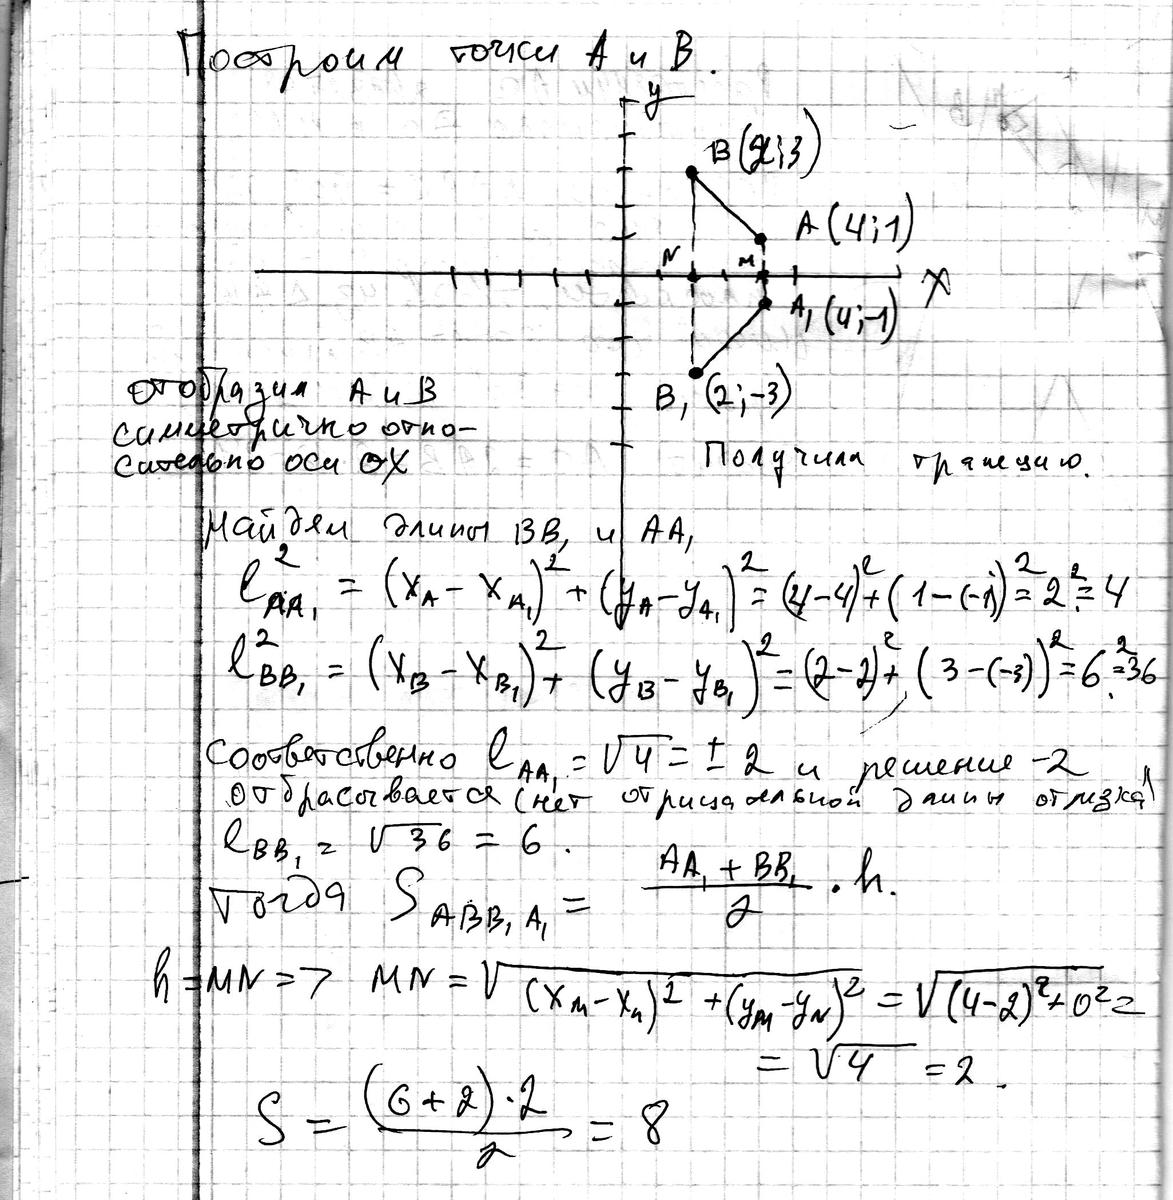 Построим точки A и B.
y
B(2;3)
A(4;1)
N
M
X
A₁(4;-1)
B₁(2;-3)
отобразим A и B
симметрично отно-
сительно оси OX
Получила трапецию.
Найдем длины BB₁ и AA₁
l²AA₁ = (xA - xA₁)² + (yA - yA₁)² = (4-4)² + (1-(-1))² = 2² = 4
l²BB₁ = (xB - xB₁)² + (yB - yB₁)² = (2-2)² + (3-(-3))² = 6² = 36
Соответственно lAA₁ = √4 = ± 2 и решение -2
отбрасывается (нет отрицательной длины отрезка)
lBB₁ = √36 = 6.
Тогда SABB₁A₁ = (AA₁ + BB₁)/2 · h.
h = MN => MN = √((xM - xN)² + (yM - yN)²) = √((4-2)² + 0²) =
= √4 = 2.
S = ((6+2)·2)/2 = 8